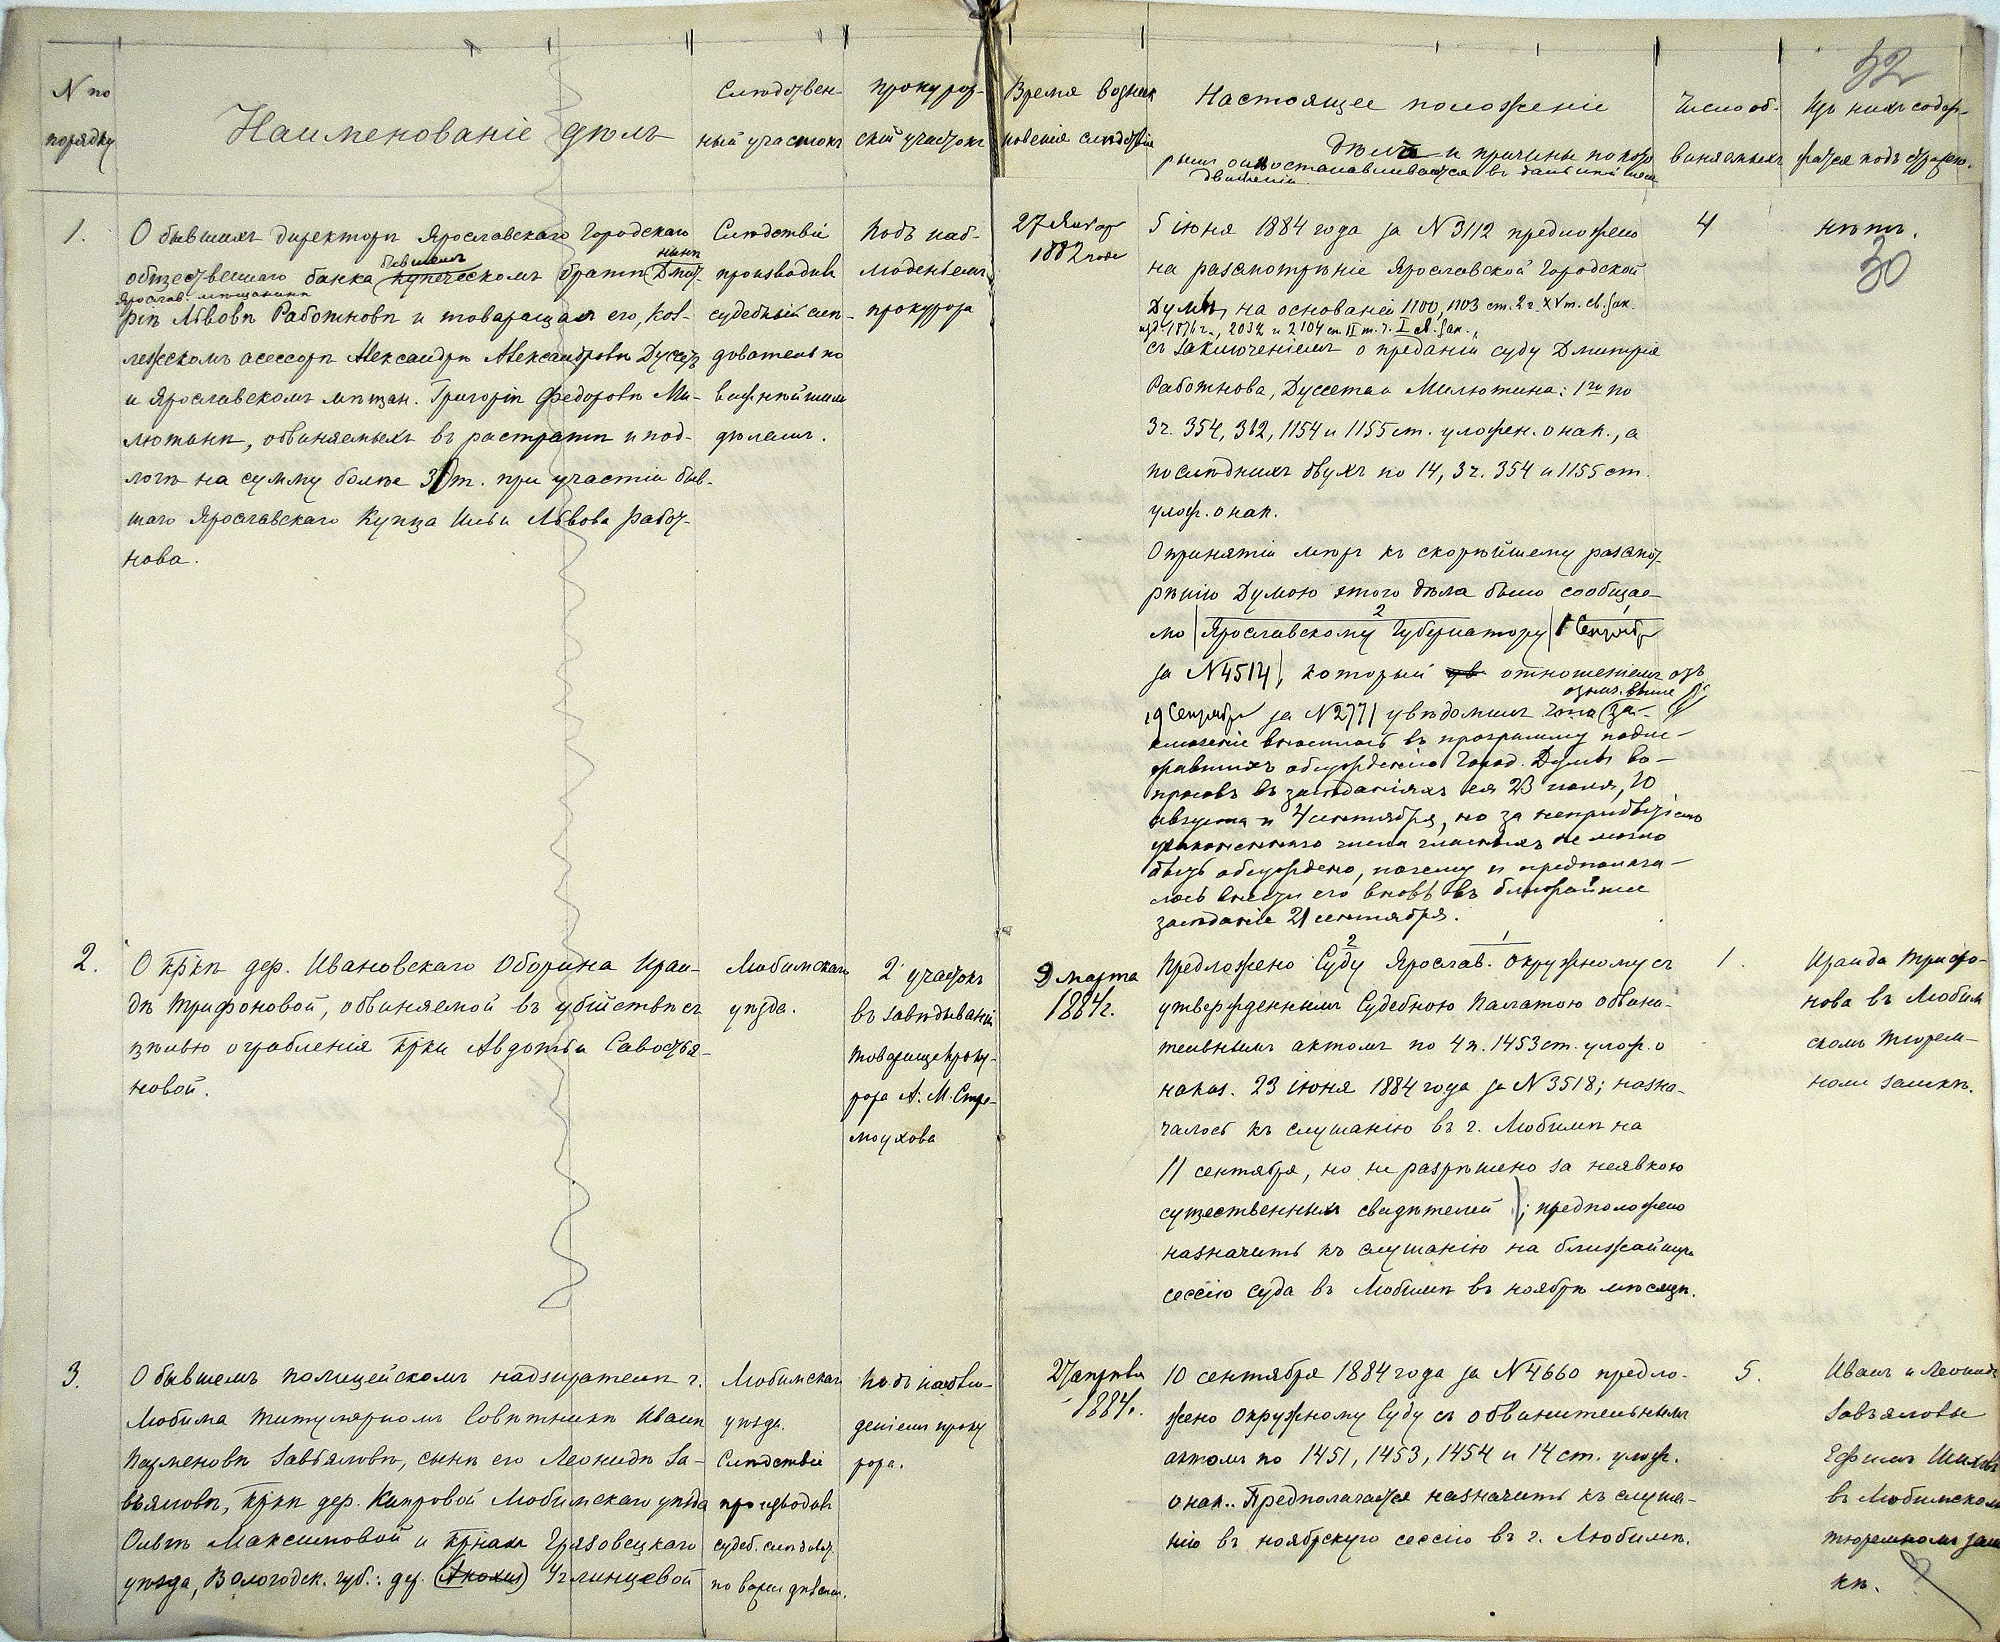 52
N по
порядку
Наименованіе дѣлъ
Слѣдствен-
ный участокъ
Прокурор-
скій участокъ
Время возник
новенія слѣдствія
Настоящее положеніе
дѣла и причины по кото
рымъ онъ останавливается въ дальнѣйшем
движеніи
Число об-
виняемыхъ
Изъ нихъ содер-
жатся подъ стражею.
1.
О бывшихъ директорѣ Ярославскаго Городского
бывшемъ нынѣ
общественнаго банка купеческомъ братѣ Дмит-
Ярослав. мѣщанинѣ
ріѣ Львовѣ Работновѣ и товарищахъ его, Кол-
лежскомъ асессорѣ Александрѣ Александровѣ Дуссетъ
и Ярославскомъ мѣщан. Григоріѣ Федоровѣ Ми-
лютинѣ, обвиняемыхъ въ растратѣ и под-
логѣ на сумму болѣе т. при участіи быв-
шаго Ярославскаго Купца Ильи Львова Работ-
нова.
Слѣдствіе
производилъ
судебный слѣ-
дователь по
важнѣйшим
дѣламъ.
Подъ наб-
люденіемъ
прокурора
27 Январ
1882 года
5 іюня 1884 года за N 3112 предложено
на разсмотрѣніе Ярославской Городской
Думы, на основаніи 1100, 1103 ст. 2 ч. XV т. св. зак.
изд. 1876 г., 2032 и 2104 ст. II т. ч. I св. зак.,
съ заключеніемъ о преданіи суду Дмитрія
Работнова, Дуссета и Милютина: 1го по
3 ч. 354, 362, 1154 и 1155 ст. уложен. о нак., а
послѣднихъ двухъ по 14, 3 ч. 354 и 1155 ст.
улож. о нак.
О принятіи мѣръ къ скорѣйшему разсмот-
рѣнію Думою этого дѣла было сообщае-
2 1
мо Ярославскому Губернатору 1 Сентябр
за N 4514, который отношеніемъ отъ
озн. выше
19 Сентября за N 2771 увѣдомилъ что за-
ключеніе вносилось въ программу подле-
жавшихъ обсужденію Город. Думы во-
просовъ въ засѣданіяхъ ея 23 июля, 20
августа и 4 сентября, но за неприбытіемъ
узаконеннаго числа гласныхъ не могло
быть обсуждено, почему и предполага-
лось внести его вновь въ ближайшее
засѣданіе 21 сентября.
4
нѣтъ.
30
2.
О кр-кѣ дер. Ивановскаго Оборина Ираи-
дѣ Трифоновой, обвиняемой въ убійствѣ съ
цѣлью ограбленія кр-ки Авдотьи Савостья-
новой.
Любимскаго
уѣзда.
2 участокъ
въ завѣдываніи
товарища проку-
рора А. М. Стре-
моухова
9 марта
1884 г.
2 1
Предложено Суду Ярослав. Окружному съ
утвержденнымъ Судебною Палатою обвини-
тельнымъ актомъ по 4 п. 1453 ст. улож. о
наказ. 23 іюня 1884 года за N 3518; назна-
чалось къ слушанію въ г. Любимѣ на
11 сентября, но не разрѣшено за неявкою
существенныхъ свидѣтелей; предположено
назначить къ слушанію на ближайшую
сессію Суда въ Любимѣ въ ноябрѣ мѣсяцѣ.
1.
Ираида Трифо-
нова въ Любим
скомъ тюрем-
номъ замкѣ.
3.
О бывшемъ полицейскомъ надзирателѣ г.
Любима Титулярномъ Совѣтникѣ Иванѣ
Парменовѣ Завьяловѣ, сынѣ его Леонидѣ За-
вьяловѣ, кр-кѣ дер. Кипровой Любимскаго уѣзда
Ольгѣ Максимовой и кр-нахъ Грязовецкаго
уѣзда, Вологодск. губ.: дер. Углинцевой
Любимскаго
уѣзда.
Слѣдствіе
производилъ
судеб. слѣдоват.
по важн. дѣламъ.
Подъ наблю-
деніемъ проку
рора.
27 апрѣля
1884 г.
10 сентября 1884 года за N 4660 предло-
жено Окружному Суду съ обвинительнымъ
актомъ по 1451, 1453, 1454 и 14 ст. улож.
о нак.. Предполагается назначить къ слуша-
нію въ ноябрскую сессію въ г. Любимѣ.
5.
Иванъ и Леонидъ
Завьяловы
Ефимъ
въ Любимскомъ
тюремномъ зам
кѣ.